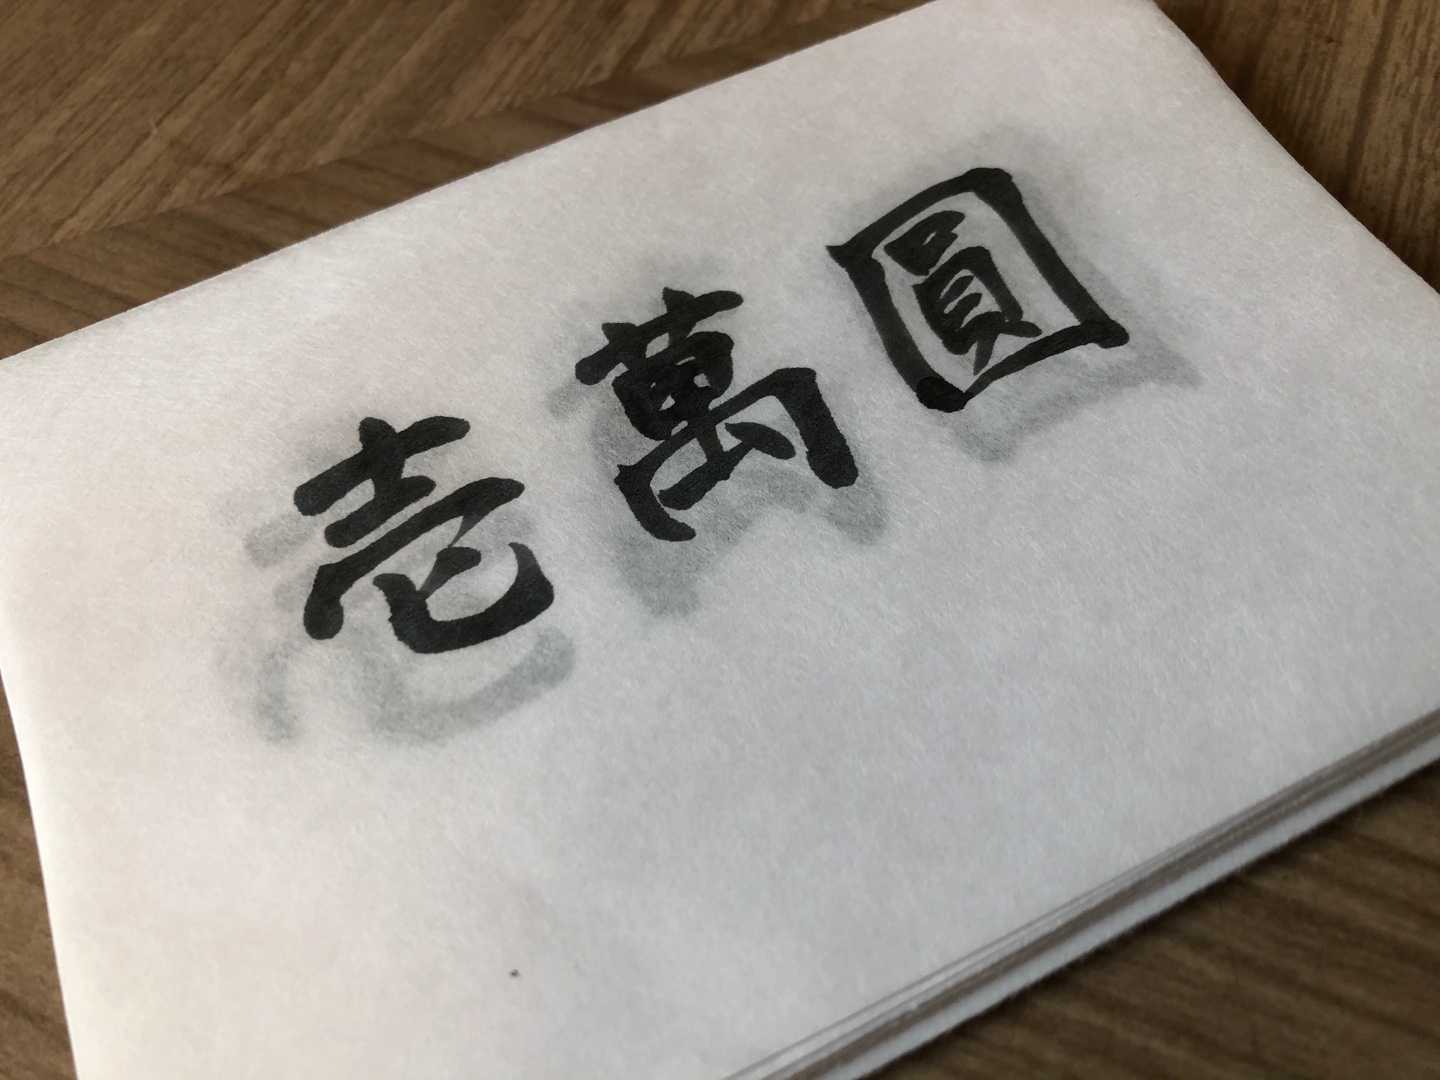 壱萬圓